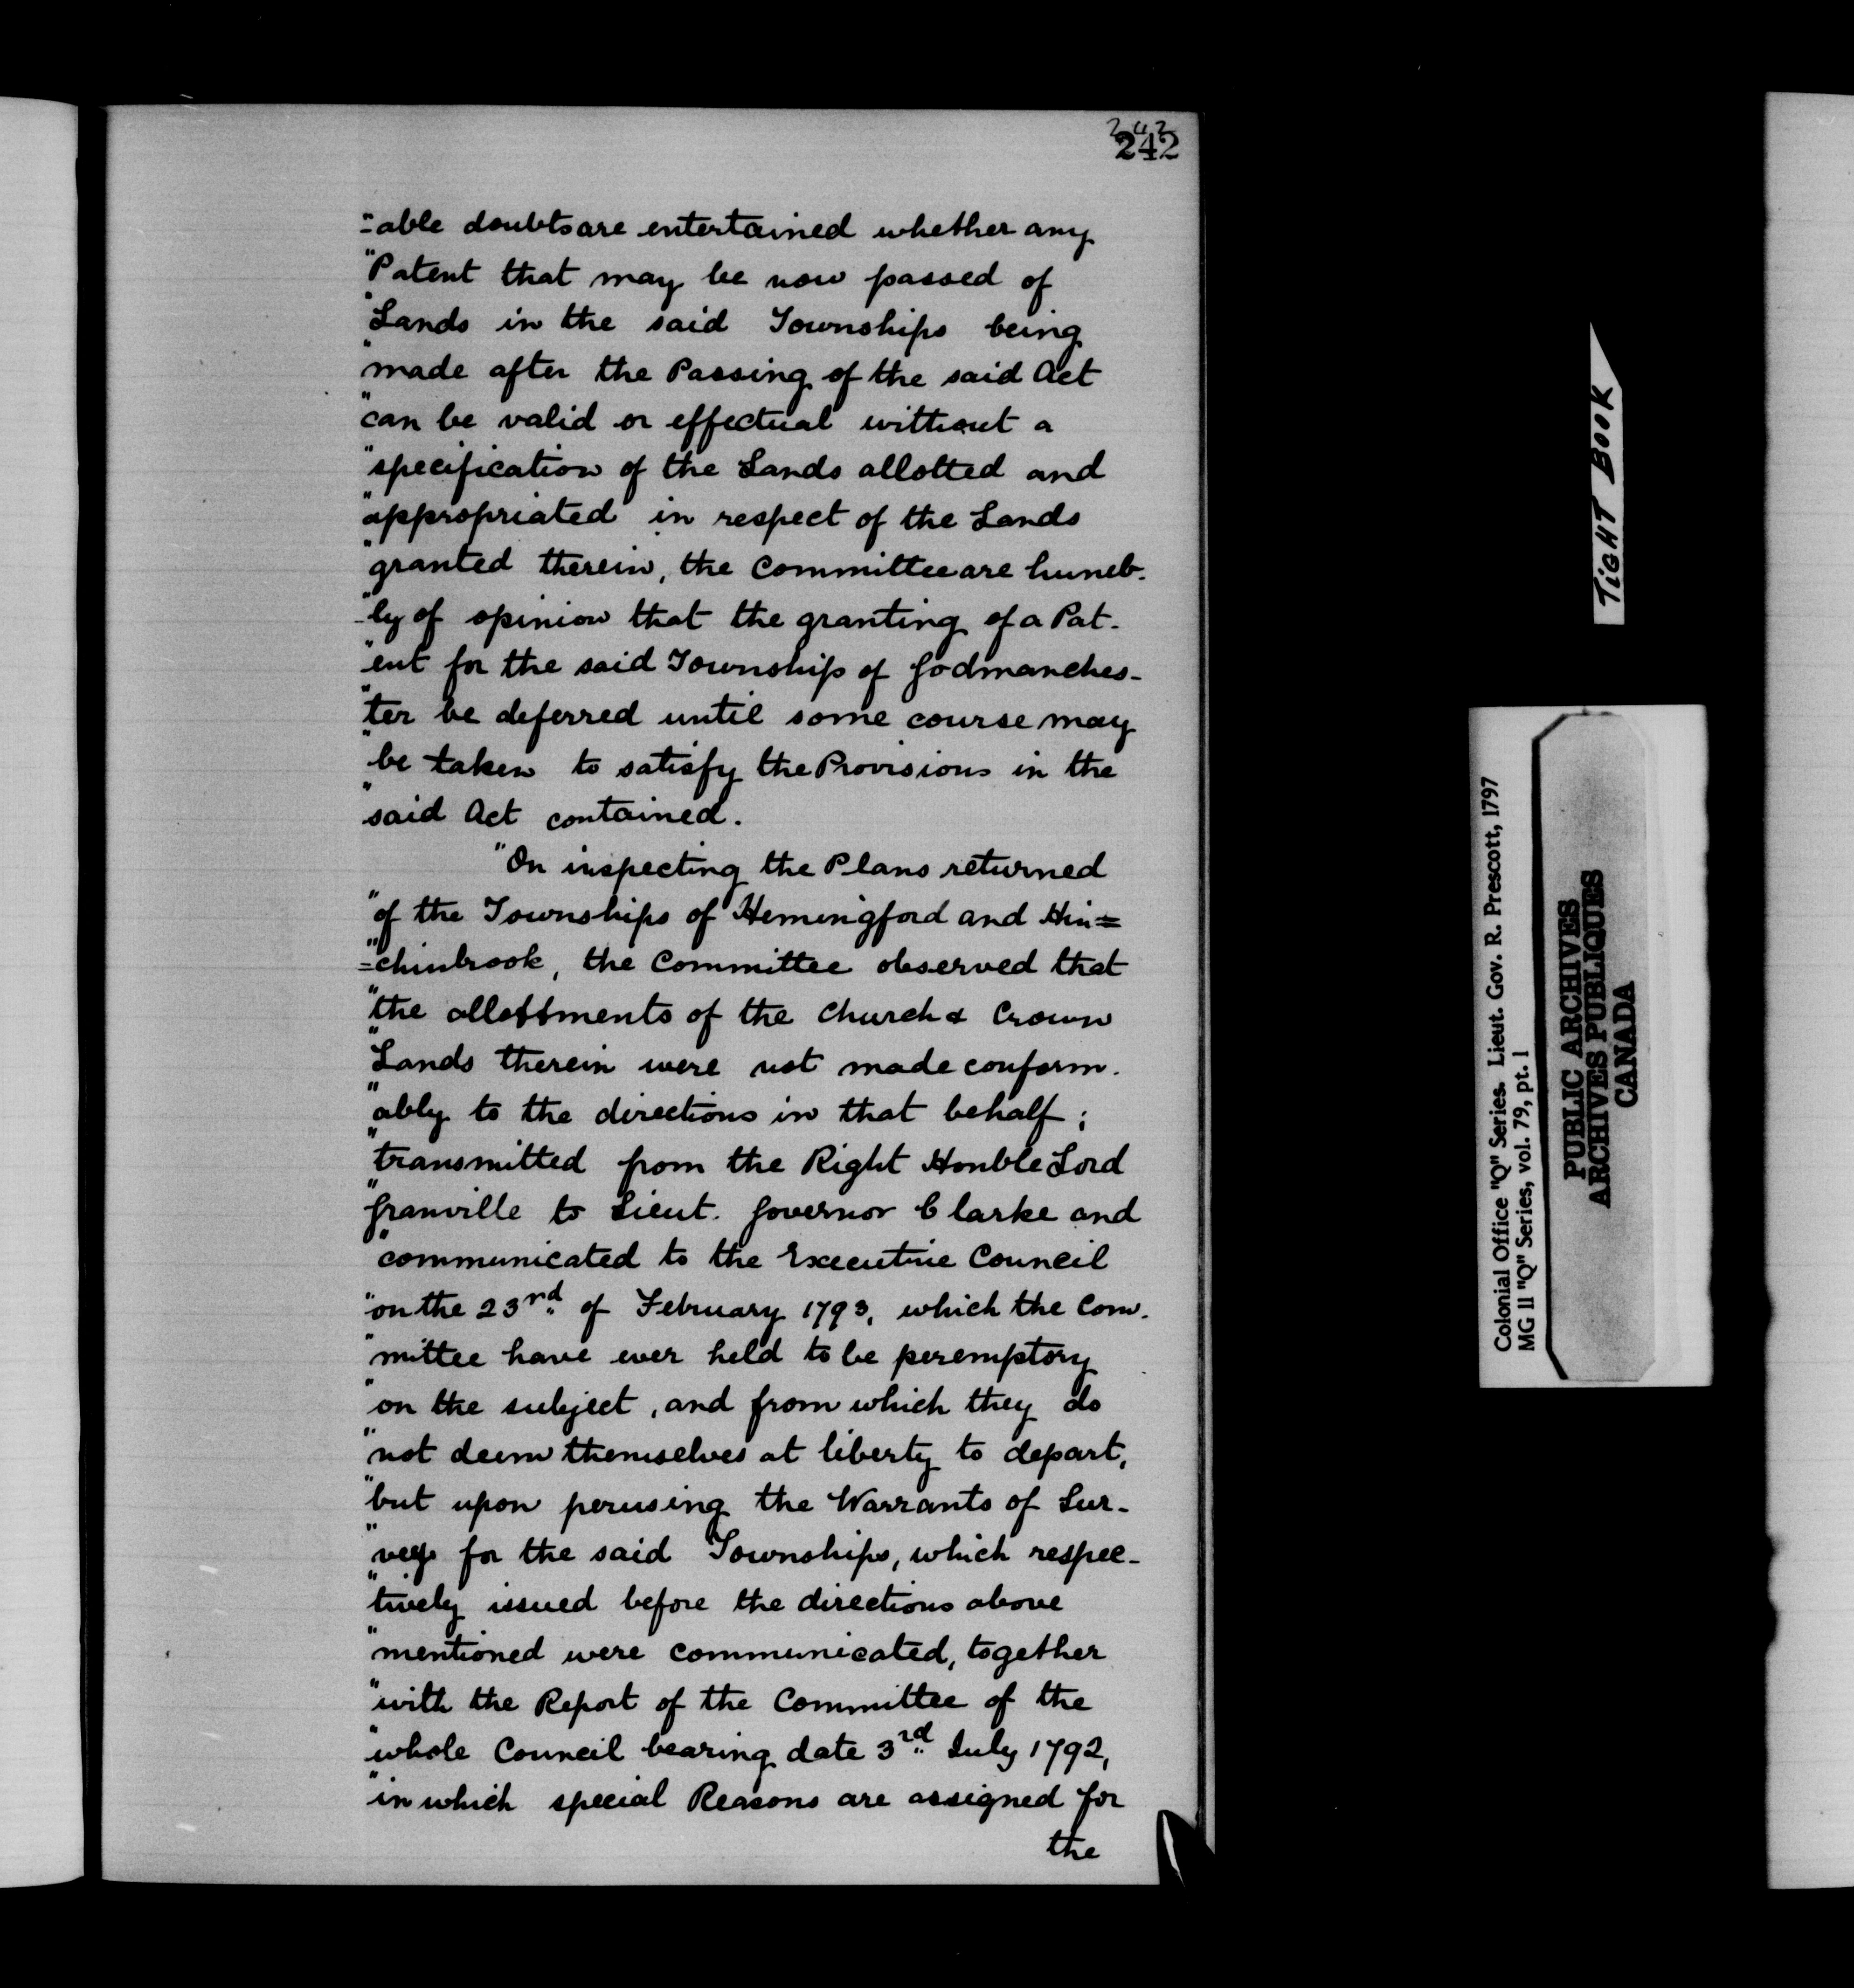 242
242
"=able doubts are entertained whether any
"Patent that may be now passed of
"Lands in the said Townships being
"made after the Passing of the said Act
"can be valid or effectual without a
"specification of the Lands allotted and
"appropriated in respect of the Lands
"granted therein, the Committee are humb-
"-ly of opinion that the granting of a Pat-
"ent for the said Township of Godmanches-
"ter be deferred until some course may
"be taken to satisfy the Provisions in the
"said Act contained.
"On inspecting the Plans returned
"of the Townships of Hemingford and Hin=
"=chinbrook, the Committee observed that
"the allottments of the Church & Crown
"Lands therein were not made conform-
"ably to the directions in that behalf;
"transmitted from the Right Honble Lord
"Granville to Lieut. Governor Clarke and
"communicated to the Executive Council
"on the 23rd. of February 1793, which the Com-
"mittee have ever held to be peremptory
"on the subject, and from which they do
"not deem themselves at liberty to depart,
"but upon perusing the Warrants of Sur-
"vey for the said Townships, which respec-
"tively issued before the directions above
"mentioned were communicated, together
"with the Report of the Committee of the
"whole Council bearing date 3rd. July 1792,
"in which special Reasons are assigned for
the
TIGHT BOOK
Colonial Office "Q" Series. Lieut. Gov. R. Prescott, 1797
MG 11 "Q" Series, vol. 79, pt. 1
PUBLIC ARCHIVES
ARCHIVES PUBLIQUES
CANADA